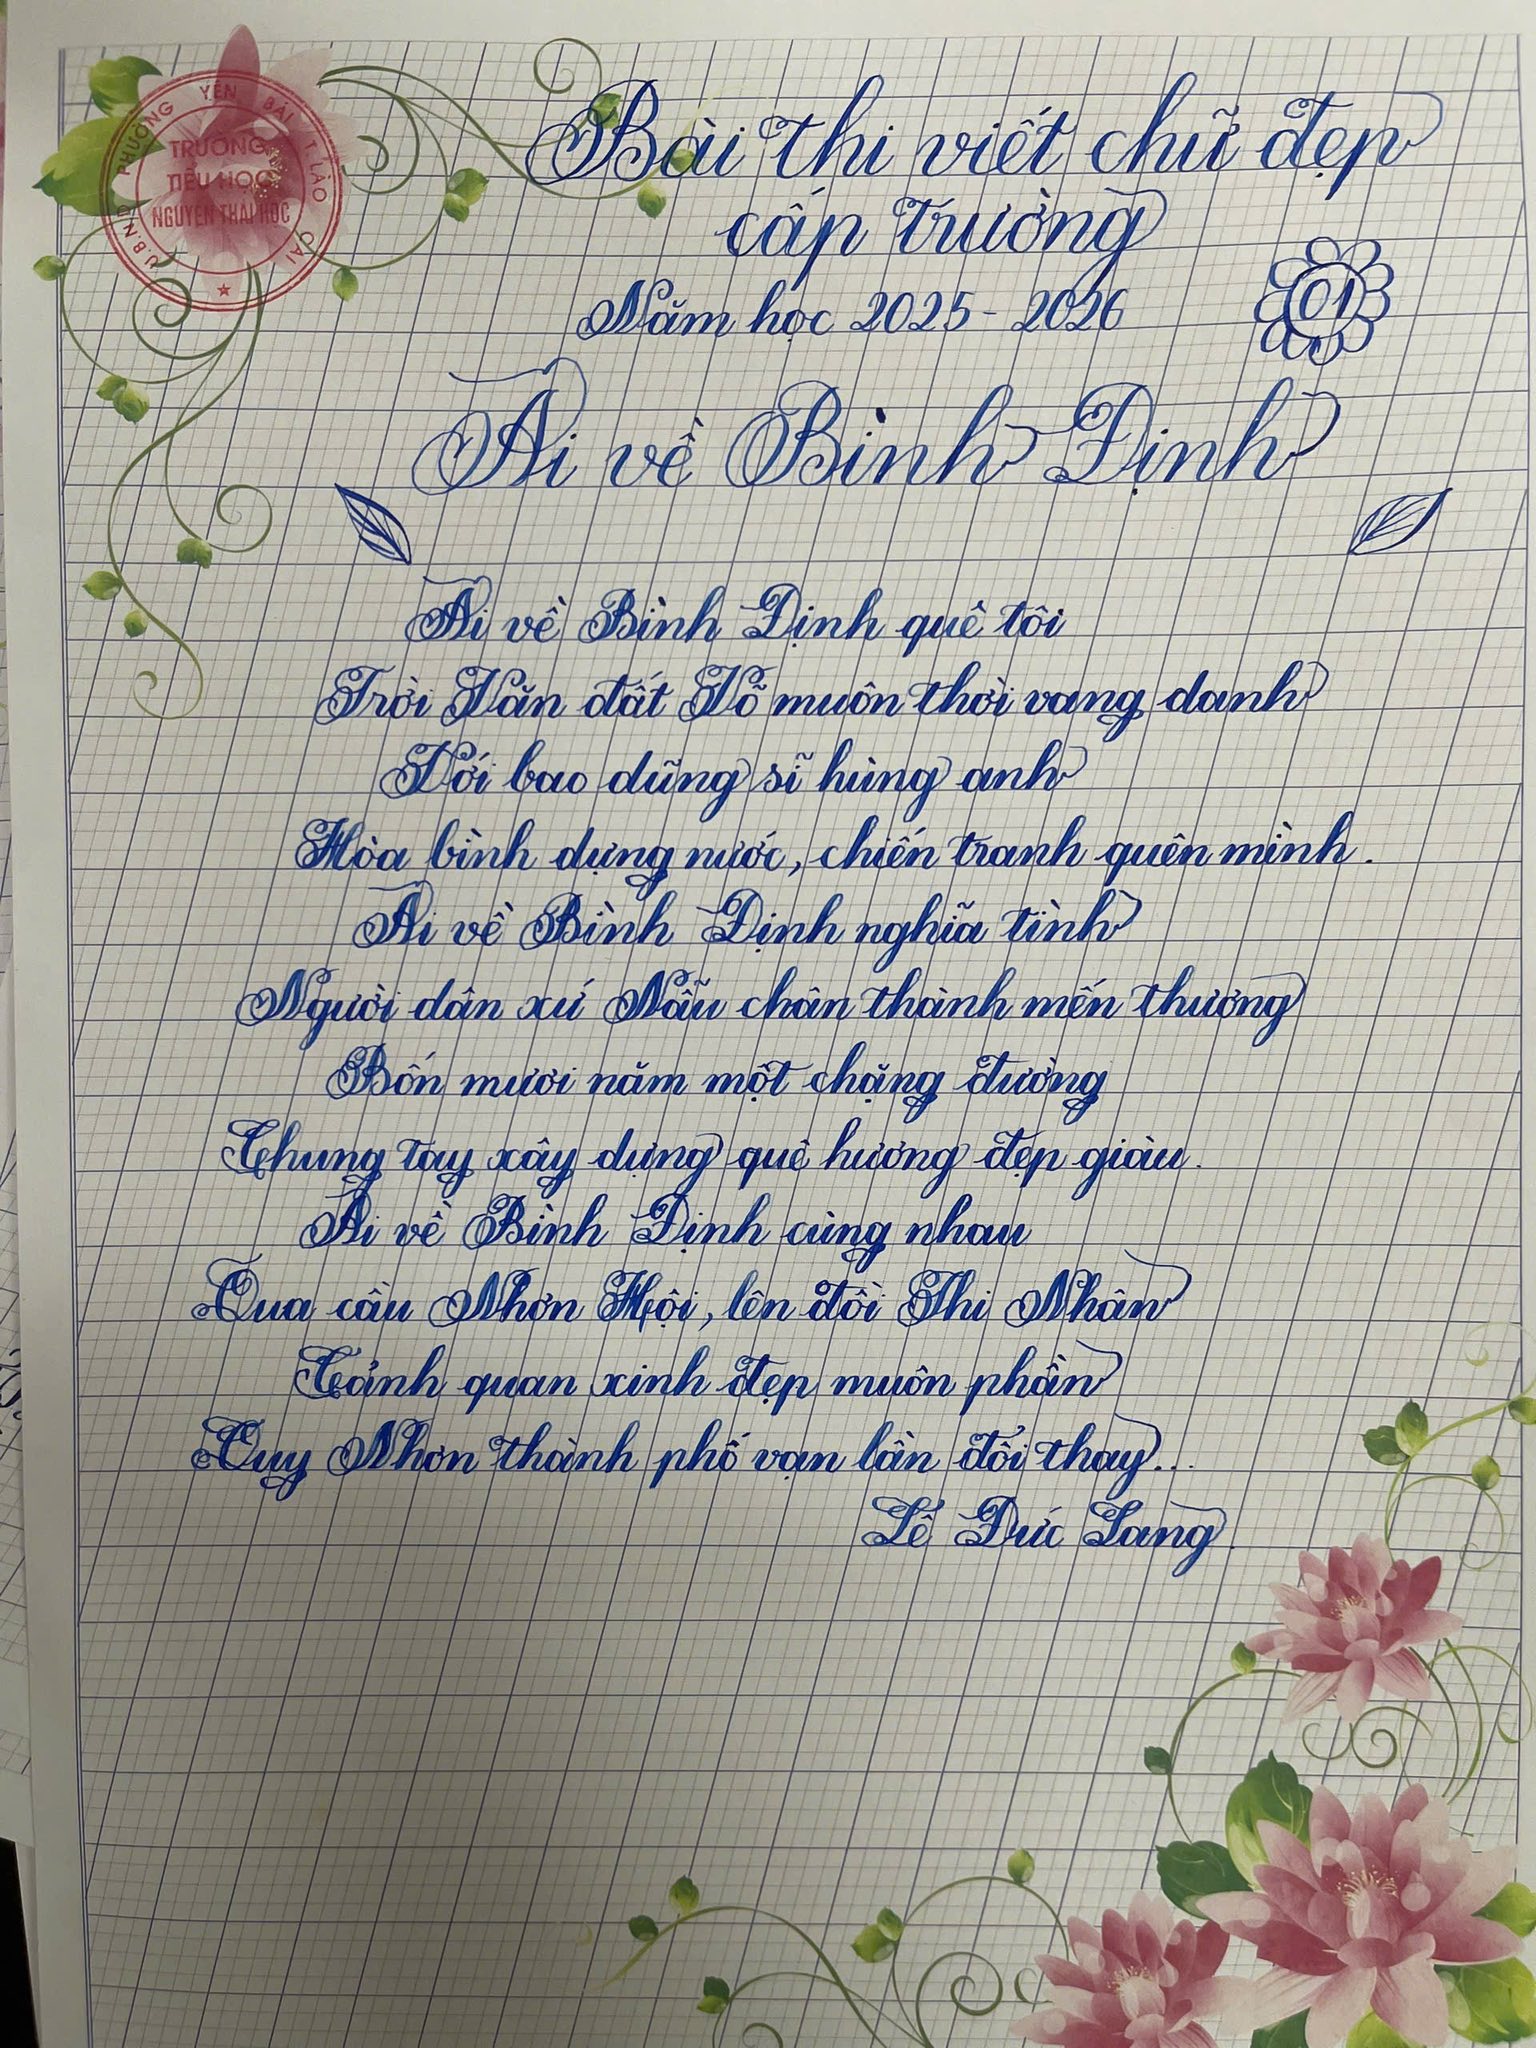 U.B.N.D PHƯỜNG YÊN BÁI T.LÀO CAI
TRƯỜNG
TIỂU HỌC
NGUYỄN THÁI HỌC
Bài thi viết chữ đẹp
cấp trường
Năm học 2025 - 2026
01
Ai về Bình Định
Ai về Bình Định quê tôi
Trời Văn đất Võ muôn thời vang danh
Với bao dũng sĩ hùng anh
Hòa bình dựng nước, chiến tranh quên mình.
Ai về Bình Định nghĩa tình
Người dân xứ Nẫu chân thành mến thương
Bốn mươi năm một chặng đường
Chung tay xây dựng quê hương đẹp giàu.
Ai về Bình Định cùng nhau
Qua cầu Nhơn Hội, lên đồi Thi Nhân
Cảnh quan xinh đẹp muôn phần
Quy Nhơn thành phố vạn lần đổi thay...
Lê Đức Lang